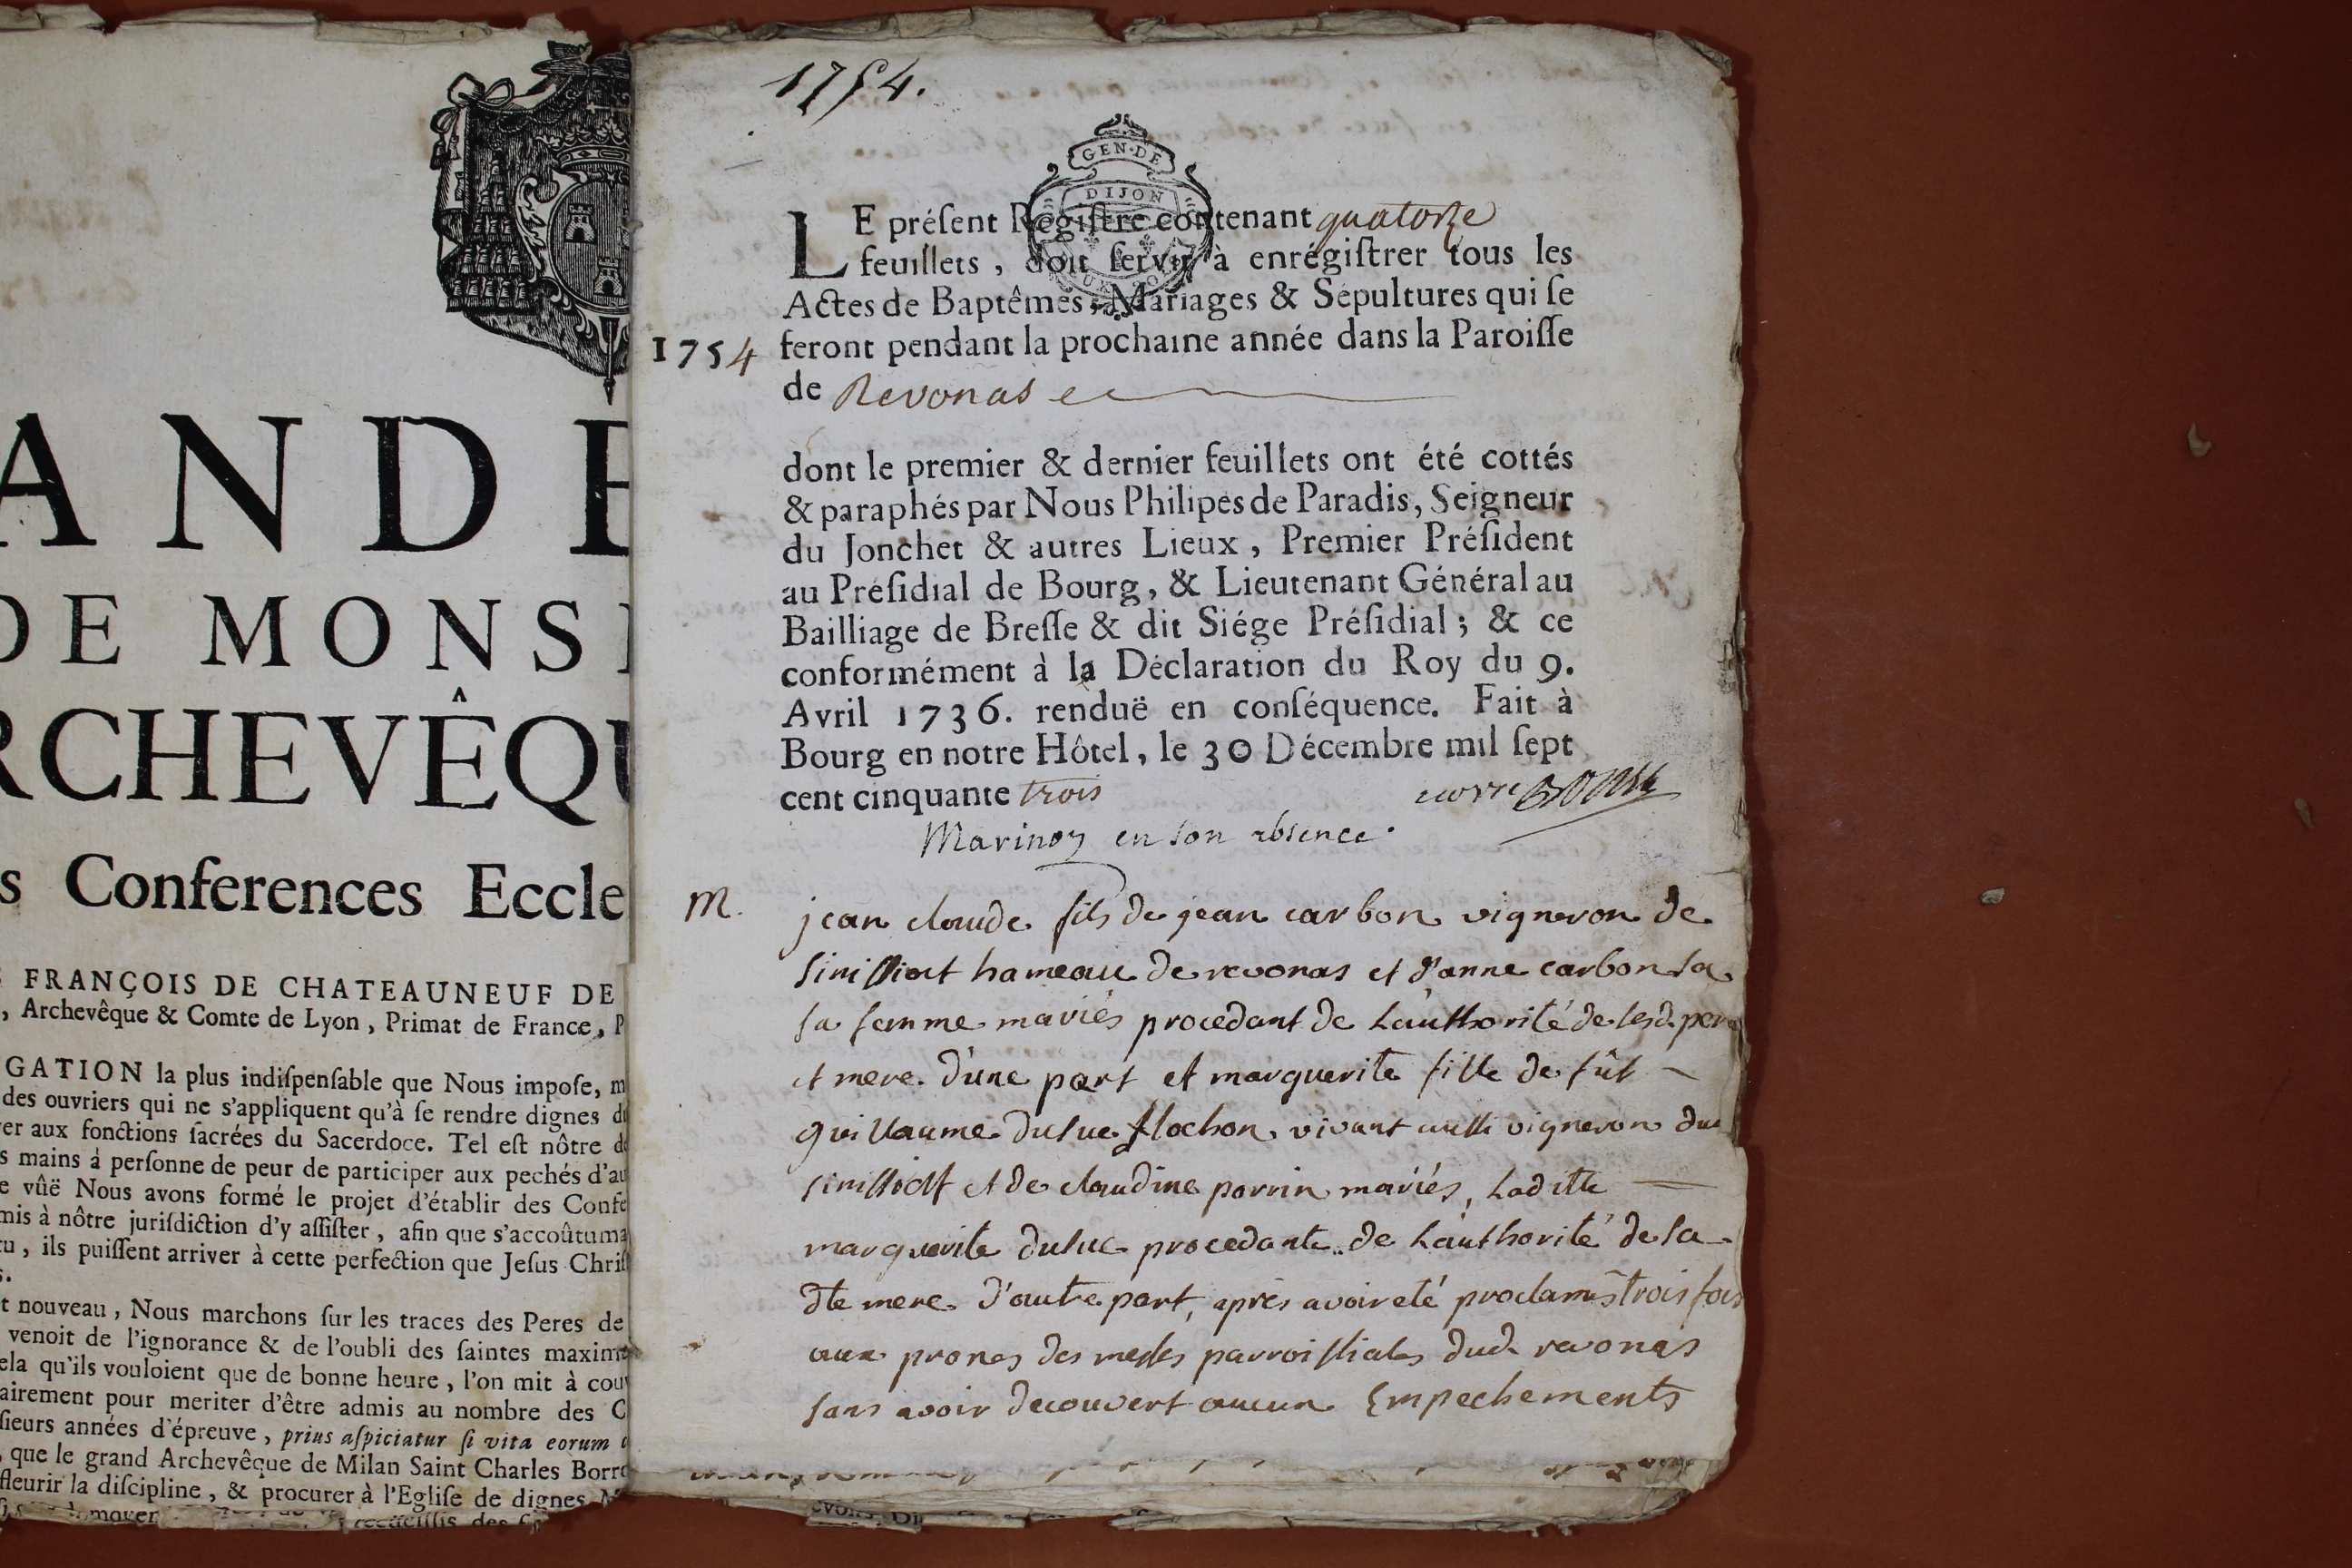 ANDE
DE MONSI
RCHEVÊQU
s Conferences Eccle
FRANÇOIS DE CHATEAUNEUF DE
, Archevêque & Comte de Lyon, Primat de France, P
GATION la plus indiſpenſable que Nous impoſe, m
des ouvriers qui ne s'appliquent qu'à ſe rendre dignes d
er aux fonctions ſacrées du Sacerdoce. Tel eſt nôtre d
s mains à perſonne de peur de participer aux pechés d'au
e vûë Nous avons formé le projet d'établir des Confe
mis à nôtre juriſdiction d'y aſſiſter, afin que s'accoûtuma
u, ils puiſſent arriver à cette perfection que Jeſus Chriſ
s.
t nouveau, Nous marchons ſur les traces des Peres de
venoit de l'ignorance & de l'oubli des ſaintes maxim
ela qu'ils vouloient que de bonne heure, l'on mit à cou
airement pour meriter d'être admis au nombre des C
ſieurs années d'épreuve, prius aſpiciatur ſi vita eorum
, que le grand Archevêque de Milan Saint Charles Borro
fleurir la diſcipline, & procurer à l'Egliſe de dignes M
1754.
GEN·DE
DIJON
LE préſent Regiſtre contenant quatorze
feuillets, doit ſervir à enrégiſtrer tous les
Actes de Baptêmes, Mariages & Sépultures qui ſe
1754 feront pendant la prochaine année dans la Paroiſſe
de Revonas
dont le premier & dernier feuillets ont été cottés
& paraphés par Nous Philipes de Paradis, Seigneur
du Jonchet & autres Lieux, Premier Préſident
au Préſidial de Bourg, & Lieutenant Général au
Bailliage de Breſſe & dit Siége Préſidial; & ce
conformément à la Déclaration du Roy du 9.
Avril 1736. renduë en conſéquence. Fait à
Bourg en notre Hôtel, le 30 Décembre mil ſept
cent cinquante trois
en son absence.
M. jean claude fils de jean carbon vigneron de
hameau de revonas et d'anne carbon sa
sa femme mariés procedant de l'authorité de sesd. pere
et mere d'une part et marguerite fille de fût
guillaume duluc flochon vivant aussi vigneron du
et de claudine perrin mariés, laditte
marguerite duluc procedante de l'authorité de sa
dte mere d'autre part, après avoir eté proclamés trois fois
aux prones des messes parroissiales dud. revonas
sans avoir decouvert aucun Empechements